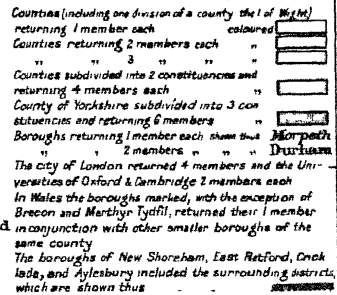 Counties (including one division of a county the I of Wight)
returning 1 member each coloured
Counties returning 2 members each "
" " 3 " " "
Counties subdivided into 2 constituencies and
returning 4 members each "
County of Yorkshire subdivided into 3 con
stituencies and returning 6 members "
Boroughs returning 1 member each shewn thus Morpeth
" " 2 members " " " Durham
The city of London returned 4 members and the Uni-
versities of Oxford & Cambridge 2 members each
In Wales the boroughs marked, with the exception of
Brecon and Merthyr Tydfil, returned their 1 member
d in conjunction with other smaller boroughs of the
same county
The boroughs of New Shoreham, East Retford, Crick
lade, and Aylesbury included the surrounding districts,
which are shown thus